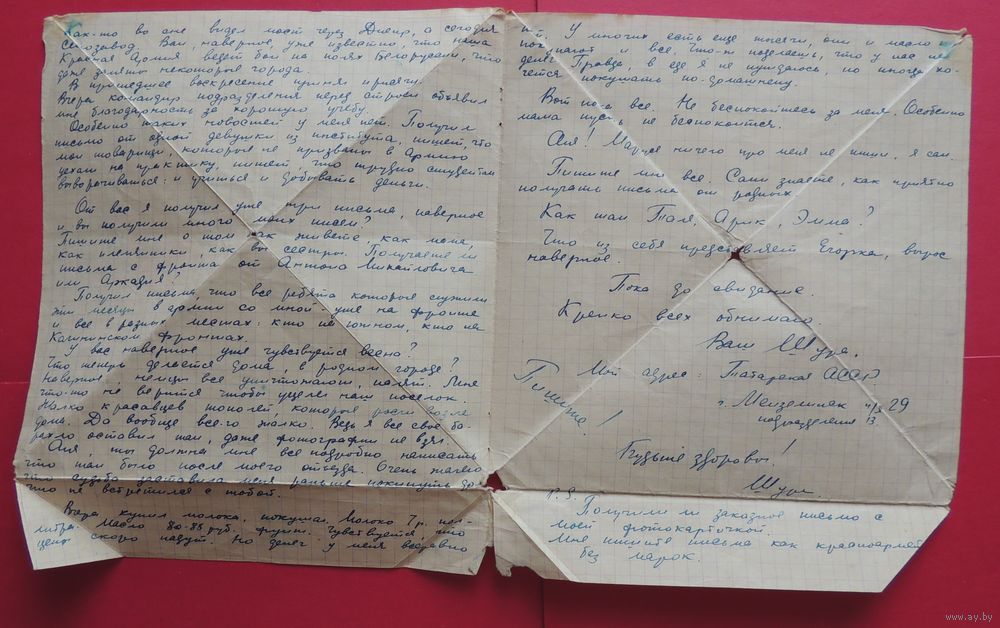 Как-то во сне видел мост через Днепр, а сегодня
лесозавод. Вам, наверное, уже известно, что наша
Красная Армия ведет бои на полях Белоруссии, что
даже заняты некоторые города.
В прошедшее воскресение принял присягу.
Вчера командир подразделения перед строем объявил
мне благодарность за хорошую учебу.
Особенно таких новостей у меня нет. Получил
письмо от одной девушки из института, пишет, что
мои товарищи, которые не призваны в армию
уехали на практику, пишет что трудно студентам
выворачиваться: и учиться и добывать деньги.
От вас я получил уже три письма, наверное
и вы получили много моих писем?
Пишите мне о том как живете, как мама,
как племянники, как вы сестры. Получаете ли
письма с фронта от Антона Михайловича
или Аркадия?
Получил письма, что все ребята которые служили
эти месяцы в армии со мной уже на фронте
и все в разных местах: кто на южном, кто на
Калининском фронтах.
У вас наверное уже чувствуется весна?
Что теперь делается дома, в родном городе?
Наверное немцы все уничтожают, палят. Мне
что-то не верится чтобы уцелел наш поселок.
Жалко красавцев тополей, которые росли возле
дома. Да вообще всего жалко. Ведь я все свое ба-
рахло оставил там, даже фотографии не взял.
Аня, ты должна мне все подробно написать
что там было после моего отъезда. Очень жалею
что судьба заставила меня раньше покинуть до
что не встретился с тобой.
Вчера купил молока, покушал. Молоко 7 р. пол-
литра. Масло 80-85 руб. Чувствуется, что
цены скоро падут. Но денег у меня все равно
нет. У многих есть еще тысячи, они и масло
покупают и все. Что-ж поделаешь, что у нас нет
денег. Правда, в еде я не нуждаюсь, но иногда хо-
чется покушать по-домашнему.
Вот пока все. Не беспокойтесь за меня. Особенно
мама пусть не беспокоится.
Аня! Марусе ничего про меня не пиши, я сам.
Пишите мне все. Сами знаете, как приятно
получать письма от родных.
Как там Толя, Арик, Элла?
Что из себя представляет Егорка, вырос
наверное.
Пока до свидание.
Крепко всех обнимаю.
Ваш Шура.
Мой адрес: Татарская АССР
г. Мензелинск п/я 29
подразделения 13.
Пишите!
Будьте здоровы!
Шура.
P.S.
Получили ли заказное письмо с
моей фотокарточкой.
Мне пишите письма как красноармей
без марок.
www.ay.by